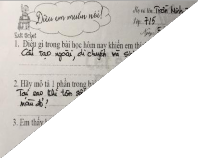 Điều em muốn nói!
Họ và tên: Trần Minh
Lớp: 7/5
Exit ticket
1. Điều gì trong bài học hôm nay khiến em th
Cấu tạo ngoài, di chuyển và
2. Hãy mô tả 1 phần trong bài
Tại sao thì tôm
màu đỏ?
3. Em thấy